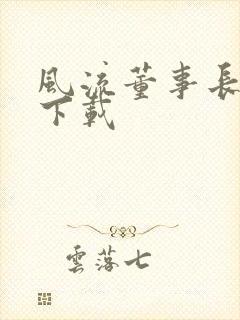 風流董事長
下載
雲落七